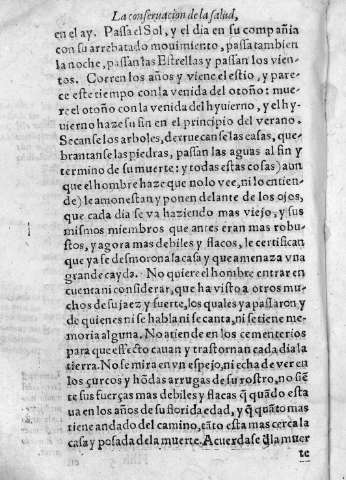 La conseruacion de la salud,
en el ay. Passa el Sol, y el dia en su compañia
con su arrebatado mouimiento, passa tambien
la noche, passan las Estrellas y passan los vien-
tos. Corren los años y viene el estio, y pare-
ce este tiempo con la venida del otoño: mue-
re el otoño con la venida del hyuierno, y el hy-
uierno haze su fin en el principio del verano.
Secanse los arboles, derruecanse las casas, que-
brantanse las piedras, passan las aguas al fin y
termino de su muerte: y todas estas cosas) aun
que el hombre haze que no lo vee, ni lo entien-
de) le amonestan y ponen delante de los ojos,
que cada dia se va haziendo mas viejo, y sus
mismos miembros que antes eran mas robu-
stos, y agora mas debiles y flacos, le certifican
que ya se desmorona la casa y que amenaza vna
grande cayda. No quiere el hombre entrar en
cuenta ni considerar, que ha visto a otros mu-
chos de su jaez y suerte, los quales ya passaron y
de quienes ni se habla ni se canta, ni se tiene me-
moria alguna. No atiende en los cementerios
para que effecto cauan y trastornan cada dia la
tierra. No se mira en vn espejo, ni echa de ver en
los çurcos y hõdas arrugas de su rostro, no siẽ
te sus fuerças mas debiles y flacas q̃ quãdo esta
ua en los años de su florida edad, y q̃ quãto mas
tiene andado del camino, tãto esta mas cerca la
casa y posada de la muerte. Acuerdase q̃ la muer
te